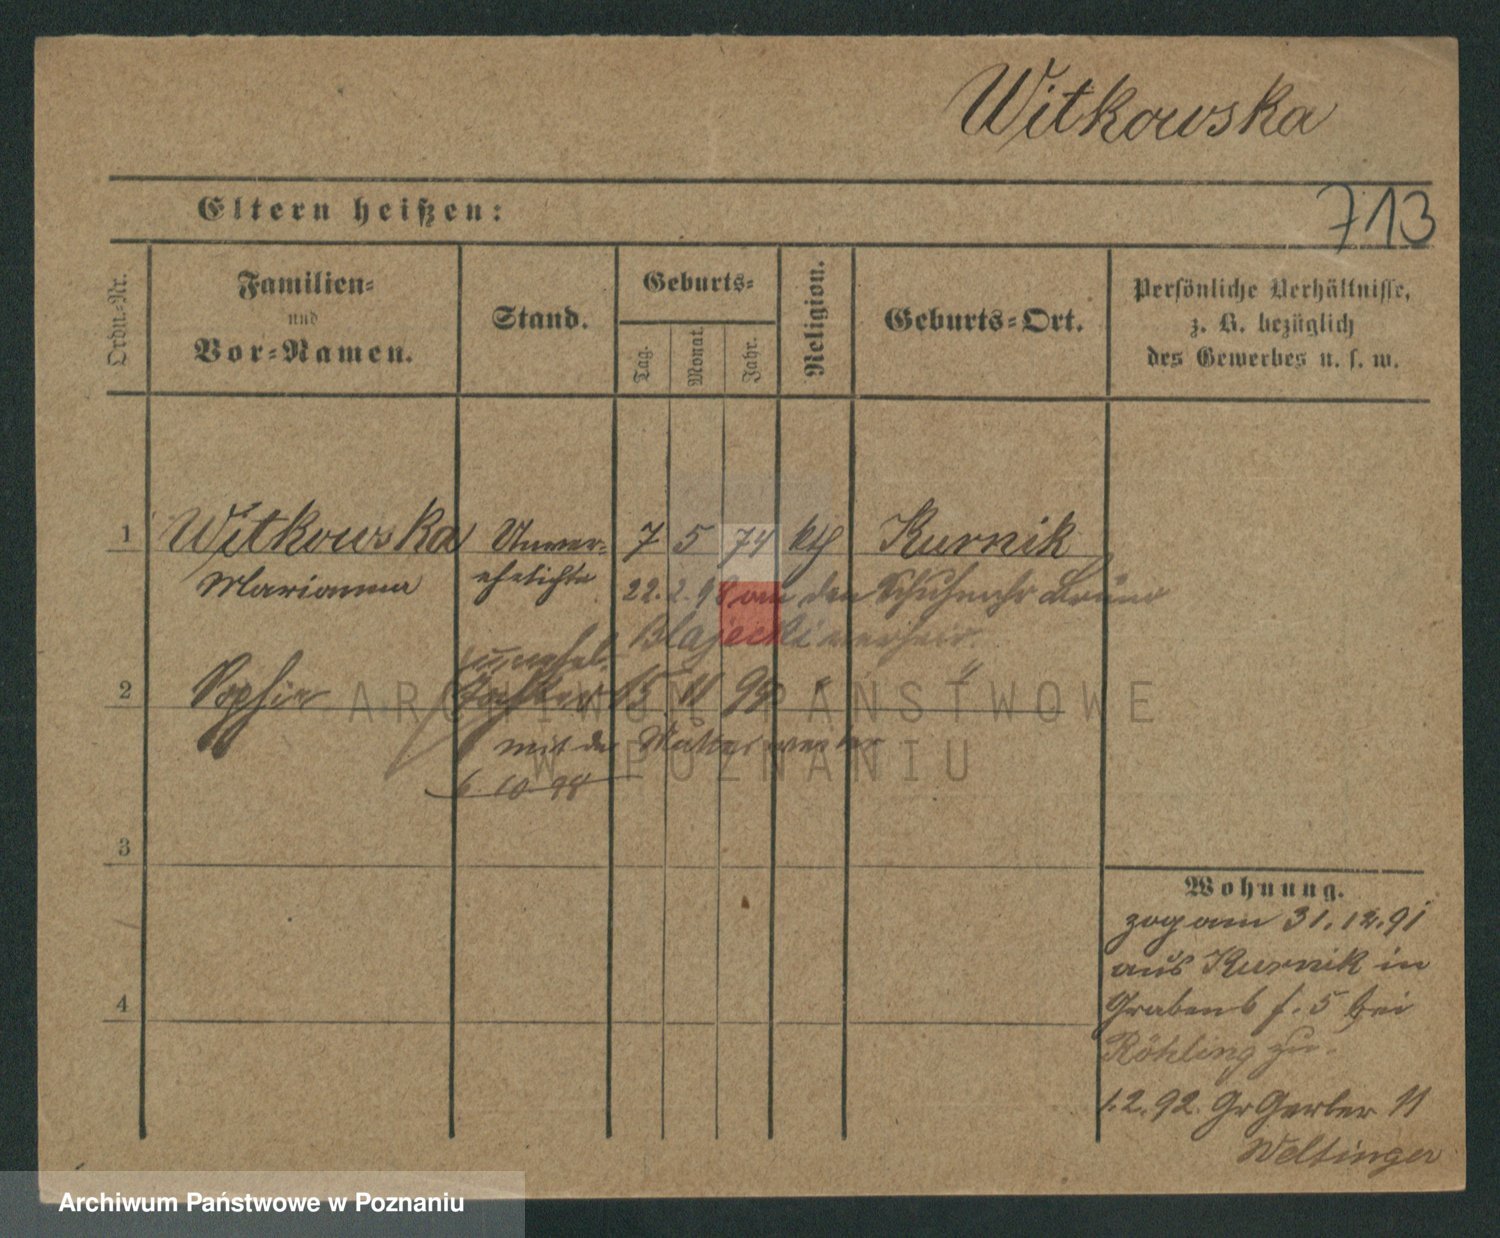 Witkowska
713
Eltern heißen:
Ordn.-Nr.
Familien-
und
Vor-Namen.
Stand.
Geburts-
Tag.
Monat.
Jahr.
Religion.
Geburts-Ort.
Persönliche Verhältnisse,
z. B. bezüglich
des Gewerbes u. s. w.
1 Witkowska Unver- 7 5 74 kth Kurnik
Marianna ehelichte 22. 2. 98 an den Schuhmchr Bruno
Blajecki verheir.
unehel.
2 Sophie Tochter 15 11 95 " "
mit der Mutter weiter
6. 10. 98
3
4
Wohnung.
zog am 31.12.91
aus Kurnik in
Graben 6 f. 5 bei
Röhling zu.
1.2.92. Gr Gerber 11
Weltinger
ARCHIWUM PAŃSTWOWE
W POZNANIU
Archiwum Państwowe w Poznaniu